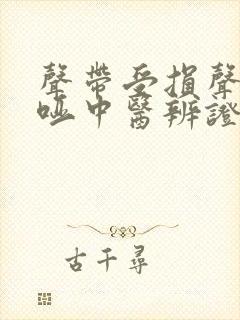 聲帶受損聲
啞中醫辨證
古千尋